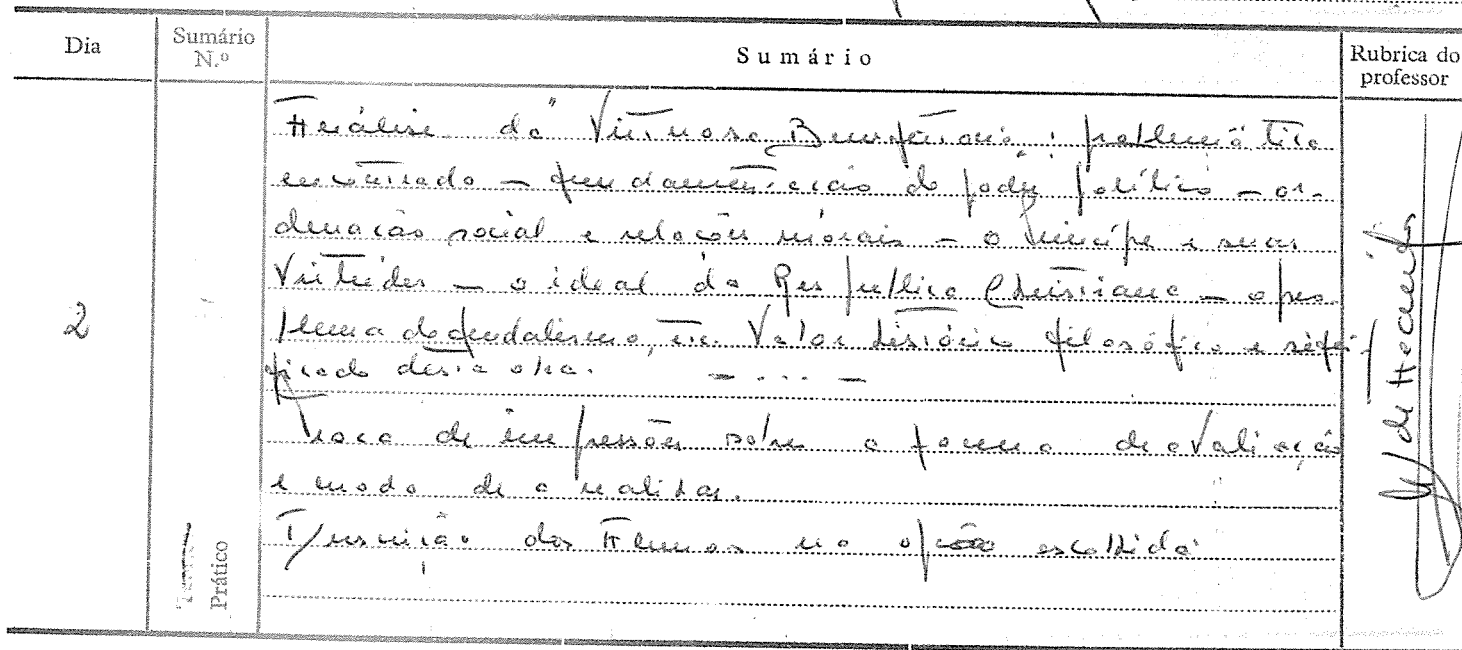 Dia
Sumário N.º
Sumário
Rubrica do professor
2
Prático
Análise da "Virtuosa Benfeitoria": problemática
encontrada — fundamentação do poder político — or-
denação social e relações morais — o príncipe e suas
virtudes — o ideal da Res publica Christiana — o pro-
blema do feudalismo, etc. Valor histórico filosófico e signi-
ficado desta obra. — ... —
Troca de impressões sobre a forma de avaliação
e modo de a realizar.
Inscrição dos Alunos na opção escolhida.